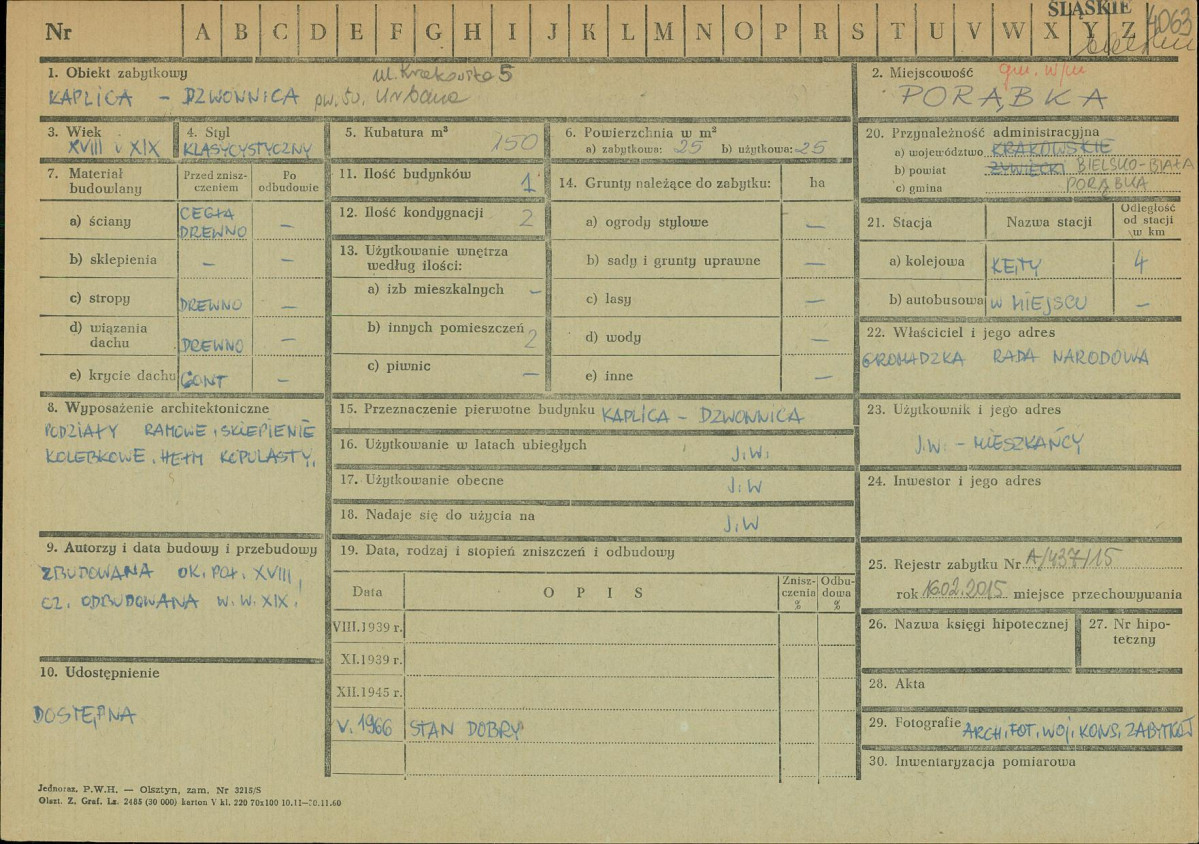 ŚLĄSKIE
4063
Nr A B C D E F G H I J K L M N O P R S T U V W X Y Z
1. Obiekt zabytkowy
ul. Krakowska 5
KAPLICA – DZWONNICA pw. św. Urbana
2. Miejscowość gm. w/m
PORĄBKA
3. Wiek
XVIII i XIX
4. Styl
KLASYCYSTYCZNY
5. Kubatura m³
150
6. Powierzchnia w m²
a) zabytkowa: 25 b) użytkowa: 25
7. Materiał budowlany
Przed zniszczeniem
Po odbudowie
a) ściany CEGŁA DRZEWNO –
b) sklepienia – –
c) stropy DREWNO –
d) wiązania dachu DREWNO –
e) krycie dachu GONT –
8. Wyposażenie architektoniczne
PODZIAŁY RAMOWE, SKLEPIENIE
KOLEBKOWE. HEŁM KOPULASTY.
9. Autorzy i data budowy i przebudowy
ZBUDOWANA OK. POŁ. XVIII,
CZ. ODBUDOWANA W. W. XIX.
10. Udostępnienie
DOSTĘPNA
11. Ilość budynków 1
12. Ilość kondygnacji 2
13. Użytkowanie wnętrza
według ilości:
a) izb mieszkalnych –
b) innych pomieszczeń 2
c) piwnic –
14. Grunty należące do zabytku: ha
a) ogrody stylowe –
b) sady i grunty uprawne –
c) lasy –
d) wody –
e) inne –
15. Przeznaczenie pierwotne budynku KAPLICA – DZWONNICA
16. Użytkowanie w latach ubiegłych J.W.
17. Użytkowanie obecne J.W
18. Nadaje się do użycia na J.W
19. Data, rodzaj i stopień zniszczeń i odbudowy
Data OPIS Zniszczenia % Odbudowa %
VIII.1939 r.
XI.1939 r.
XII.1945 r.
V. 1966 STAN DOBRY
20. Przynależność administracyjna
a) województwo KRAKOWSKIE
b) powiat ŻYWIECKI BIELSKO-BIAŁA
c) gmina PORĄBKA
21. Stacja Nazwa stacji Odległość od stacji w km
a) kolejowa KĘTY 4
b) autobusowa W MIEJSCU –
22. Właściciel i jego adres
GROMADZKA RADA NARODOWA
23. Użytkownik i jego adres
J.W. – MIESZKAŃCY
24. Inwestor i jego adres
25. Rejestr zabytku Nr A/437/15
rok 16.02.2015 miejsce przechowywania
26. Nazwa księgi hipotecznej
27. Nr hipoteczny
28. Akta
29. Fotografie ARCH. FOT. WOJ. KONS. ZABYTKÓW
30. Inwentaryzacja pomiarowa
Jednoraz. P.W.H. — Olsztyn, zam. Nr 3215/S
Olszt. Z. Graf. Lz. 2485 (30 000) karton V kl. 220 70x100 10.11—30.11.60